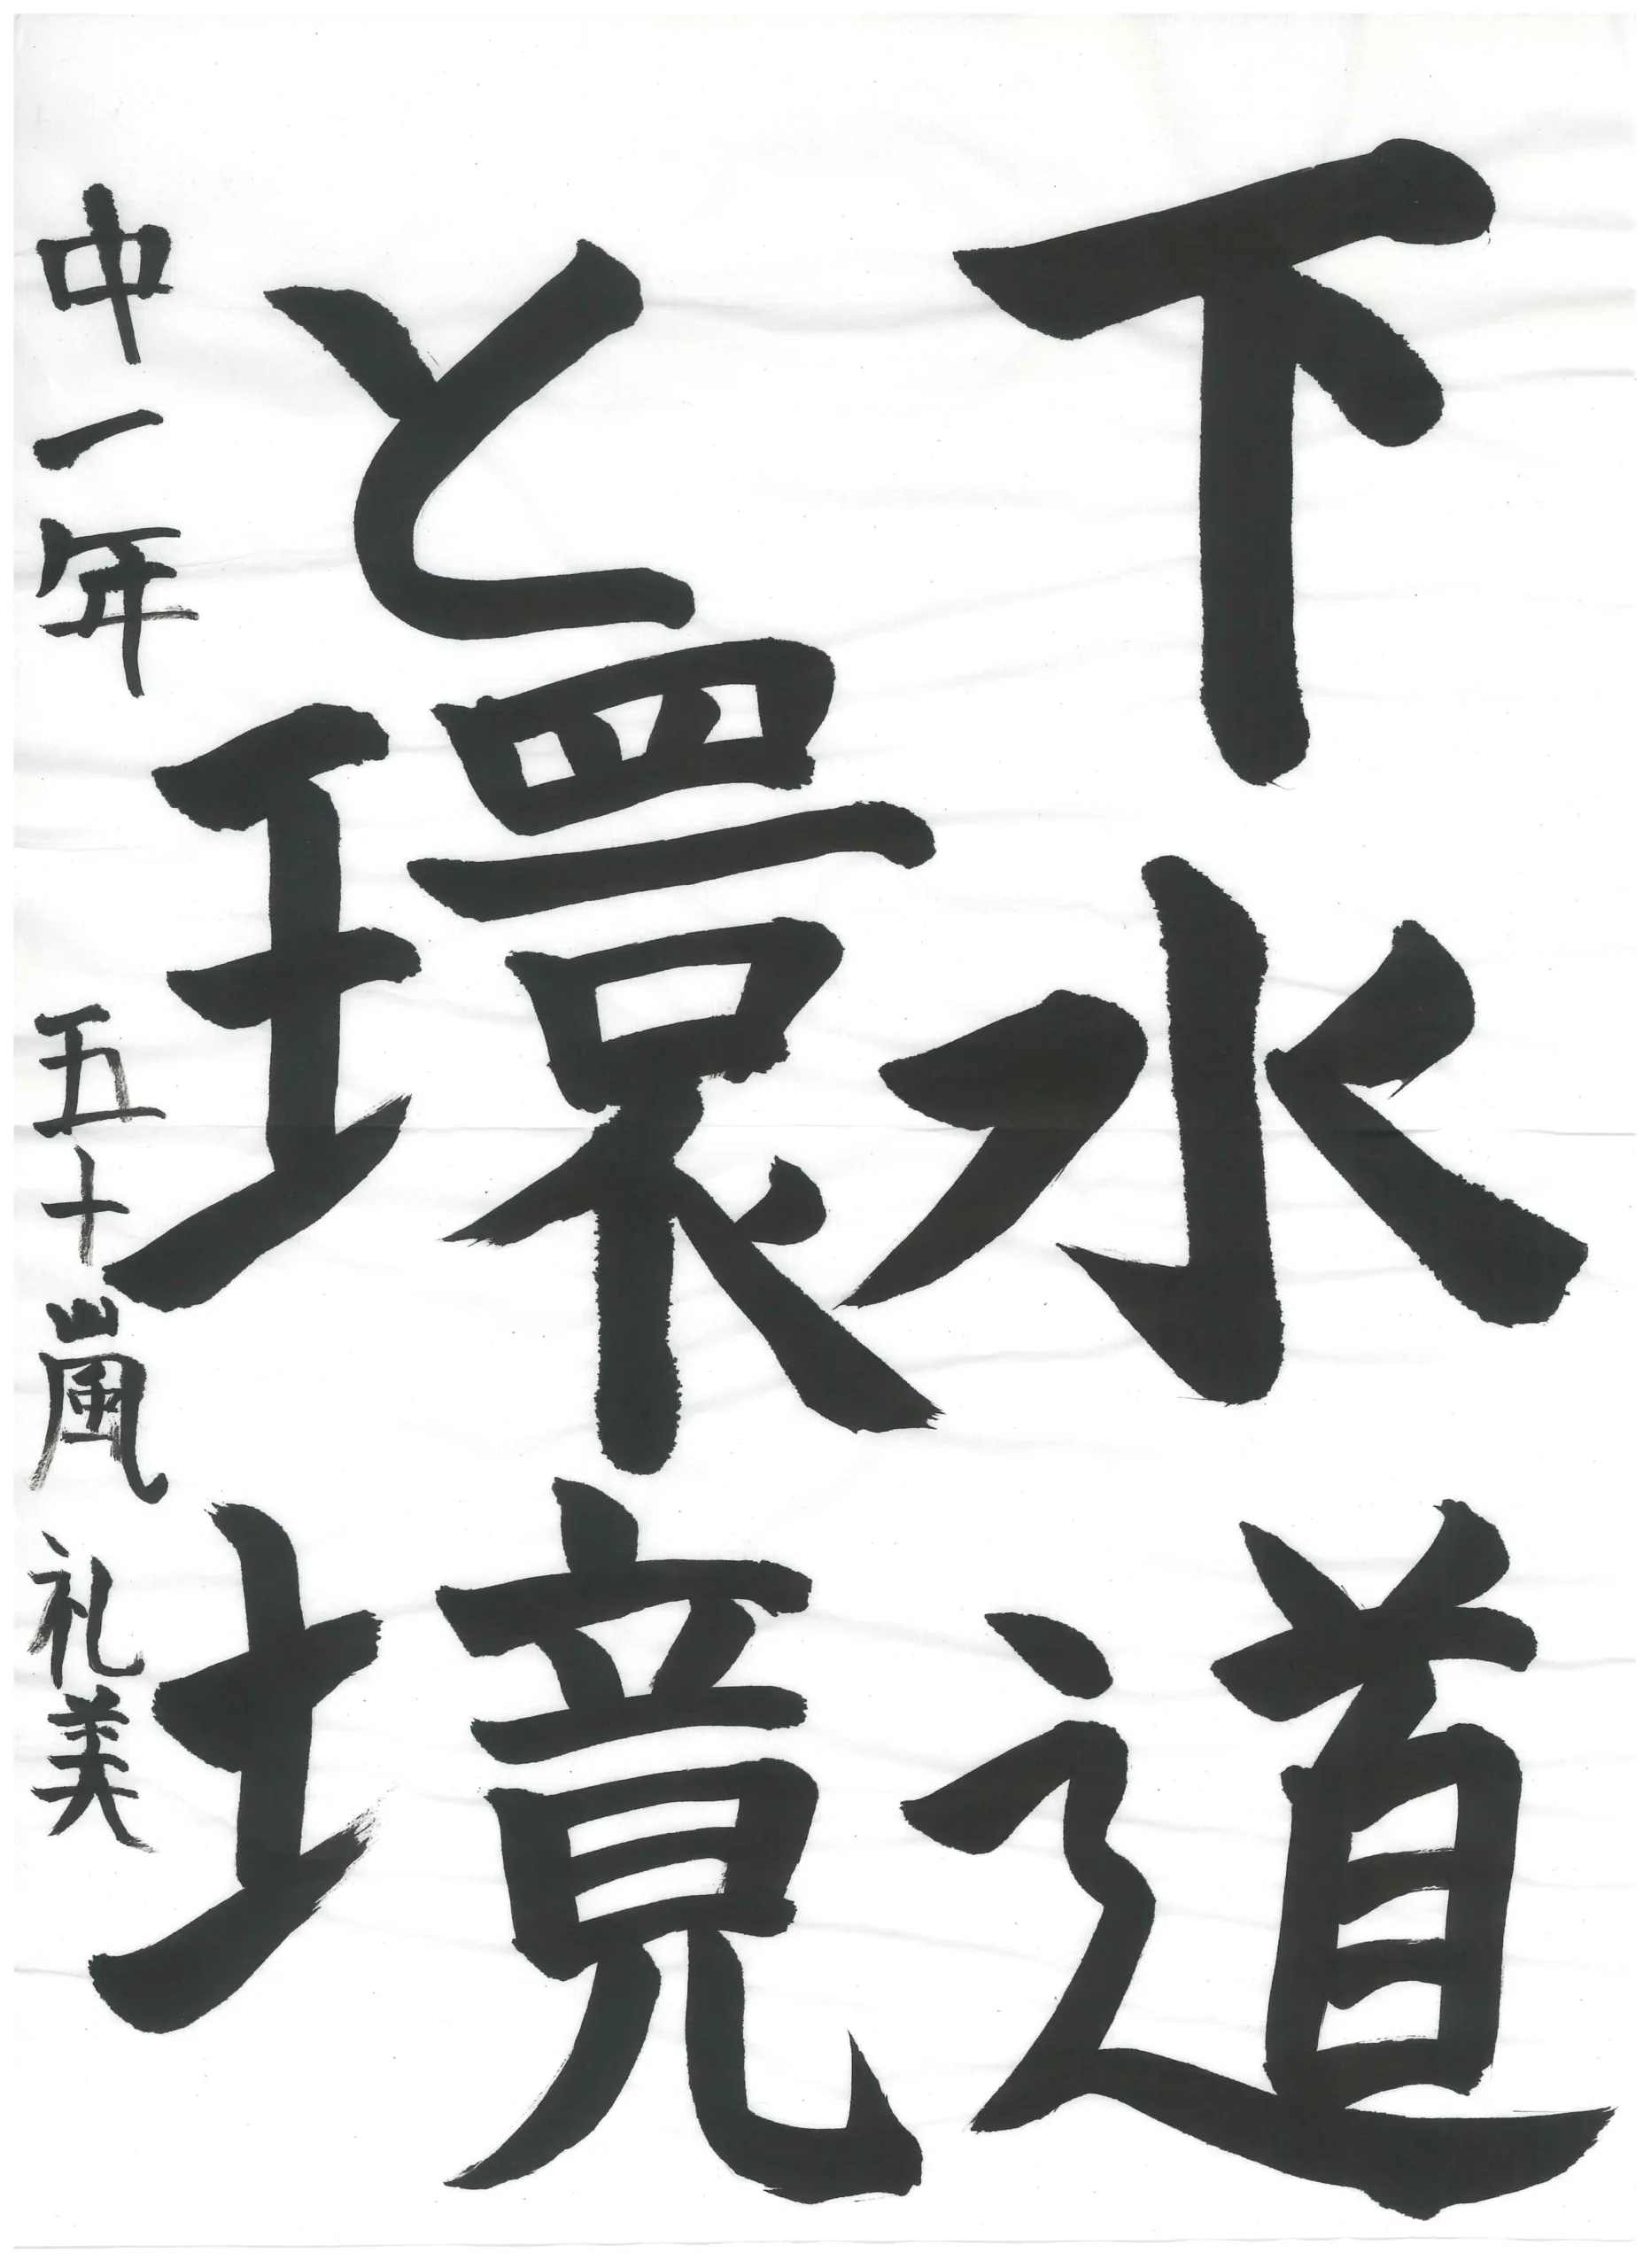 下水道
と環境
中一年 五十嵐礼美